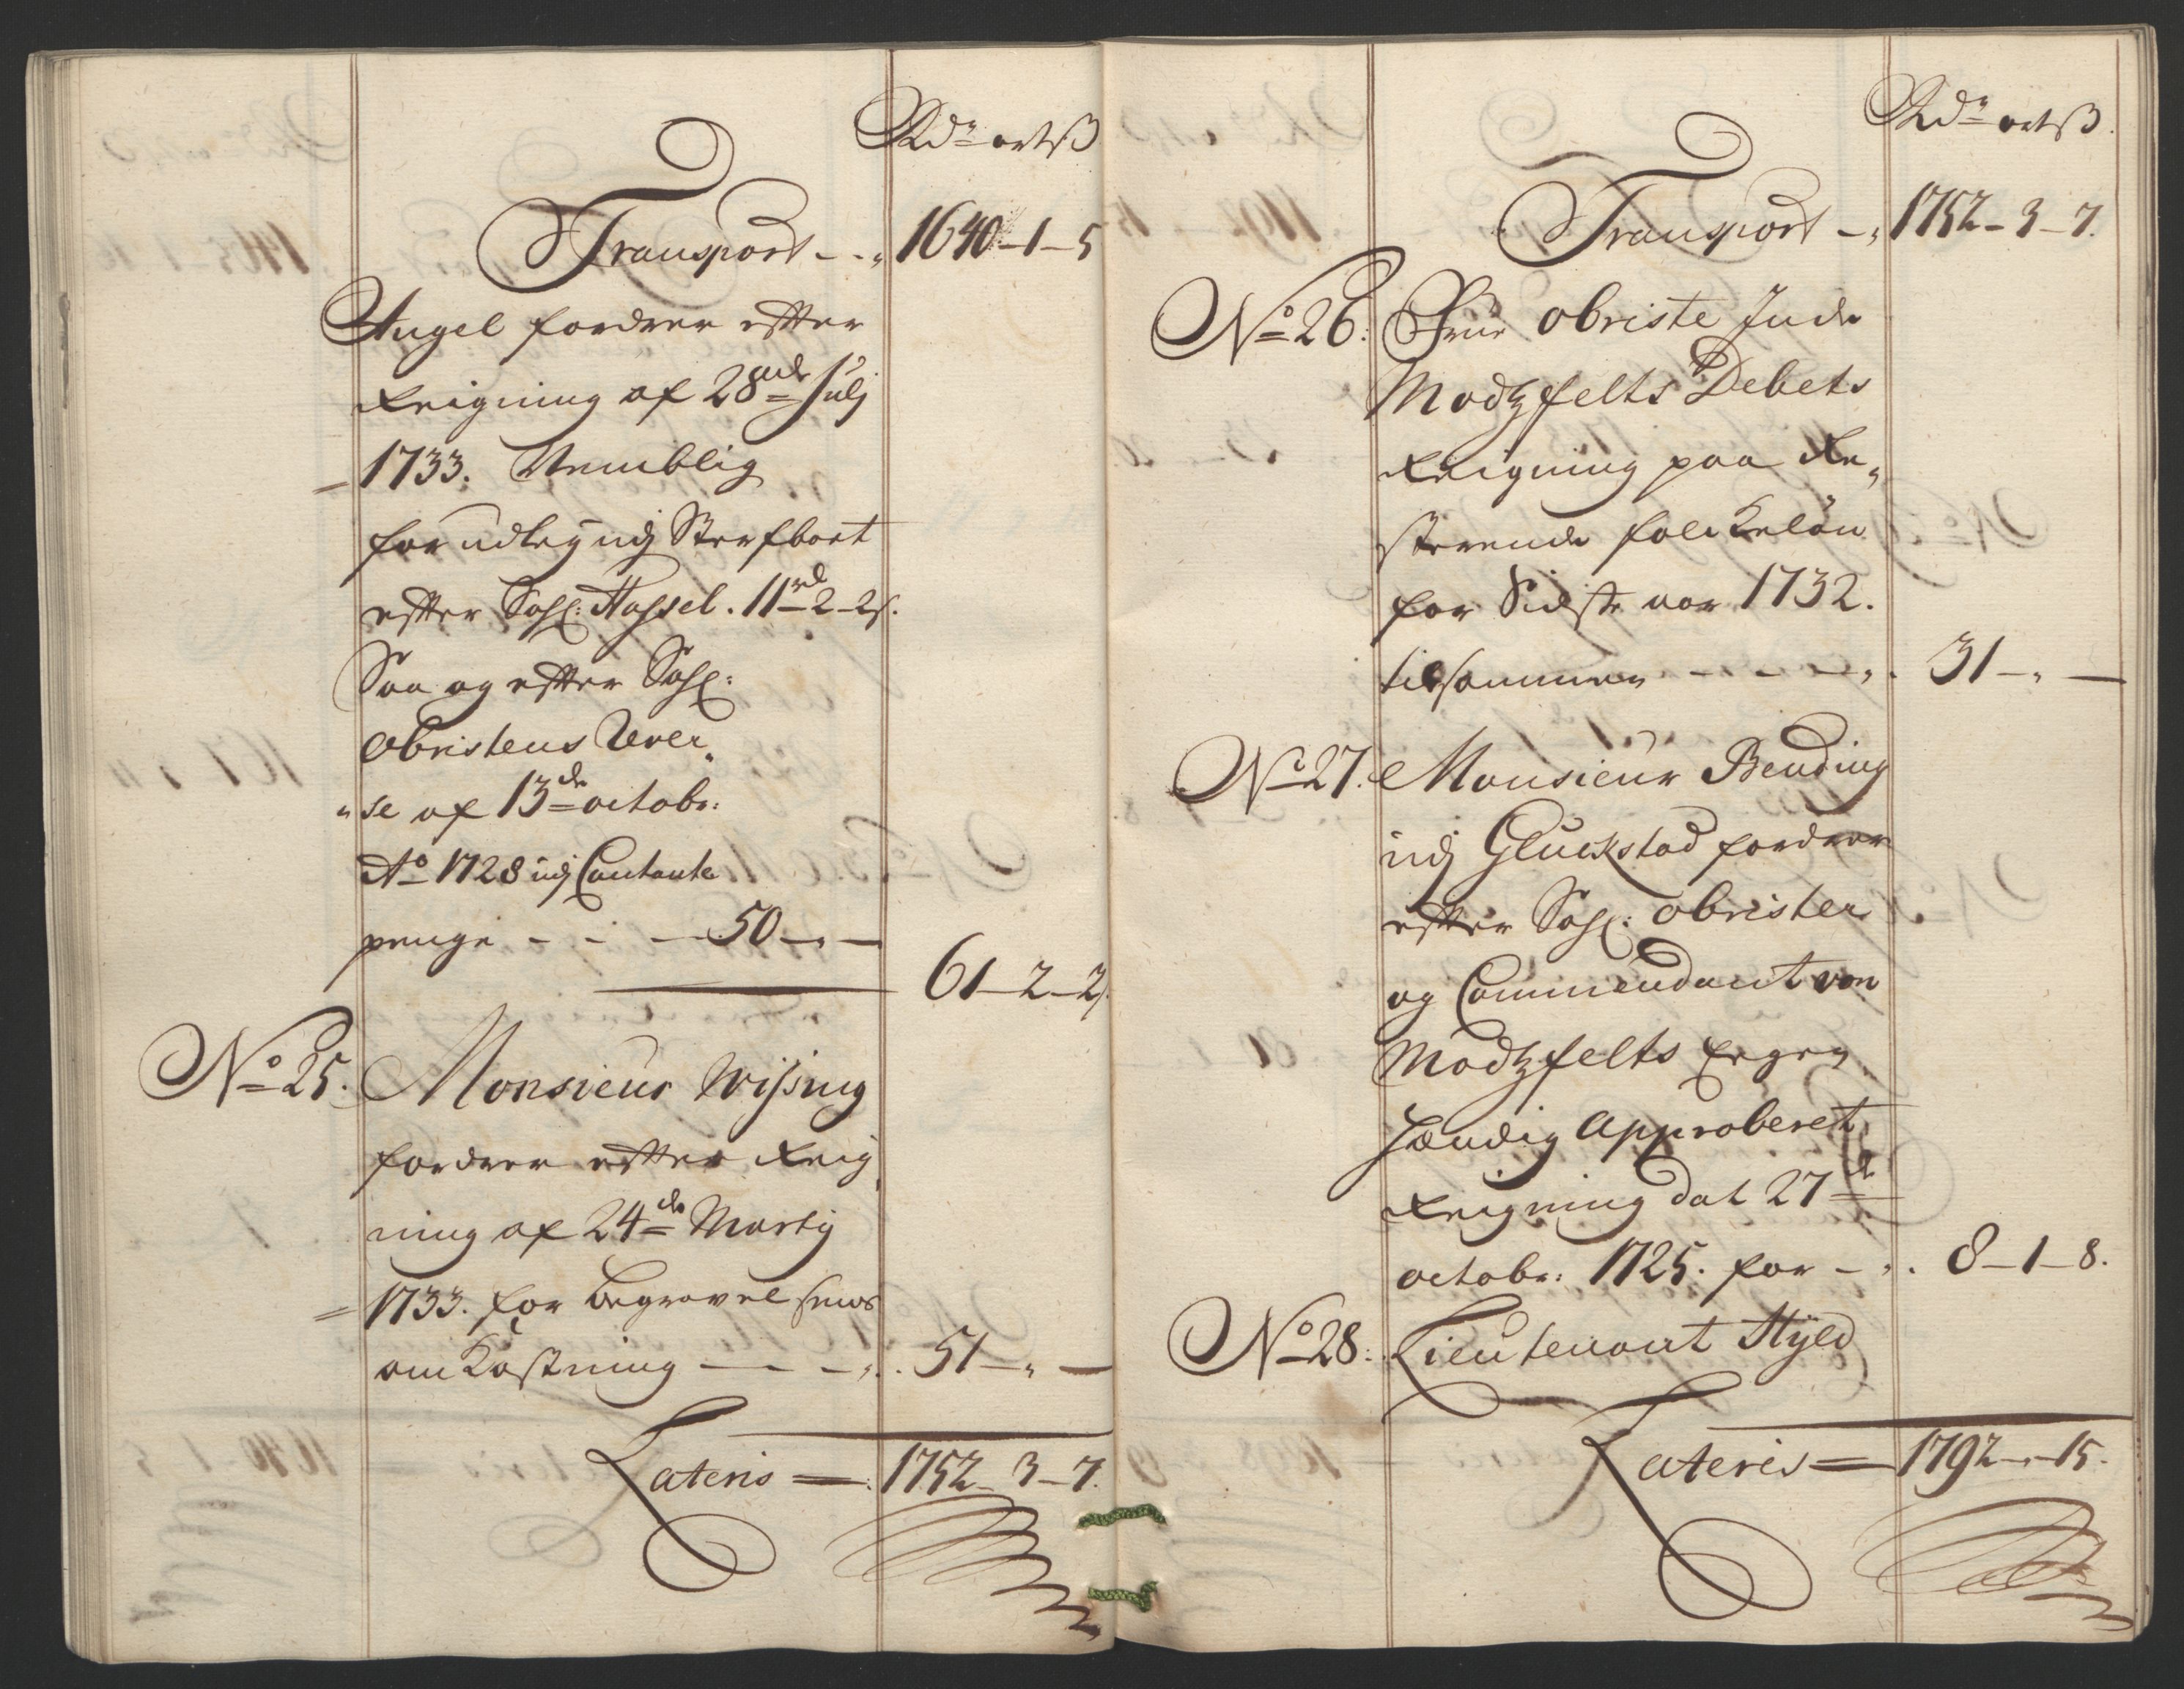 Rdr ort ß
Transport - - „ 1640 - 1 - 5
Angel fordrer efter
Reigning af 28de Julij
1733. Nemblig
for udleg udj Sterfboet
efter Sahl: Hassel. 11rd 2 - 2ß.
Saa og efter Sahl:
Obristens Rever„
„se af 13de octobr:
Ao 1728 udj Contante
penge - - - 50 - „ -
61 - 2 - 2ß.
No 25. Monsieur Wissing
fordrer efter Reig„
ning af 24de Martij
1733. for Begravelsens
omkostning - - - „ . 51 - „ -
Lateris = : 1752 - 3 - 7.
Rdr ort ß.
Transport - „ 1752 - 3 - 7.
No 26: Frue Obriste Jude
Modtzfelts Debets
Reigning paa Re„
sterende folckeløn
for Sidste aar 1732.
tilsammen - - - - „ . 31 - „ -
No 27. Monsieur Bending
udj Gluckstad fordrer
efter Sahl: Obrister
og Commendant von
Modtzfelts Egen
hændig Approberet
Reigning dat 27de
octobr: 1725. for - „ . 8 - 1 - 8.
No 28: Lieutenant Hyld
Lateris = 1792 - „ - 15.